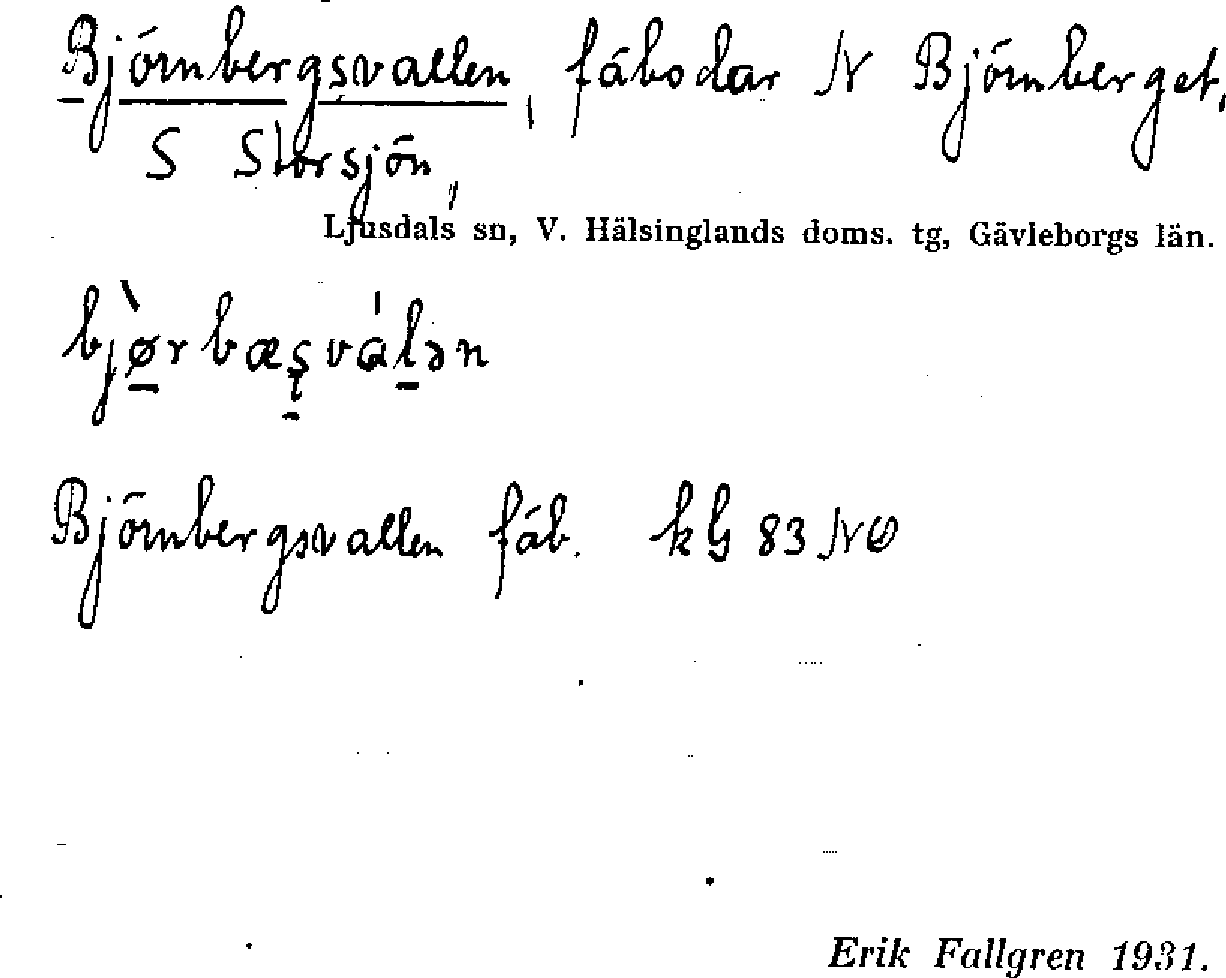 Björnbergsvallen, fäbodar N Björnberget,
S Storsjön,
Ljusdals sn, V. Hälsinglands doms. tg, Gävleborgs län.
bjø̀rbæșválən
Björnbergsvallen fäb. kG 83 NO
Erik Fallgren 1931.